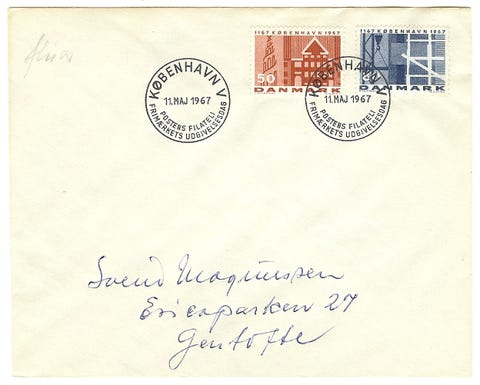 1167 KØBENHAVN 1967
50
DANMARK
1167 KØBENHAVN 1967
DANMARK
KØBENHAVN V
11.MAJ 1967
POSTENS FILATELI
FRIMÆRKETS UDGIVELSESDAG
KØBENHAVN V
11.MAJ 1967
POSTENS FILATELI
FRIMÆRKETS UDGIVELSESDAG
Svend Magnussen
Ericaparken 27
Gentofte